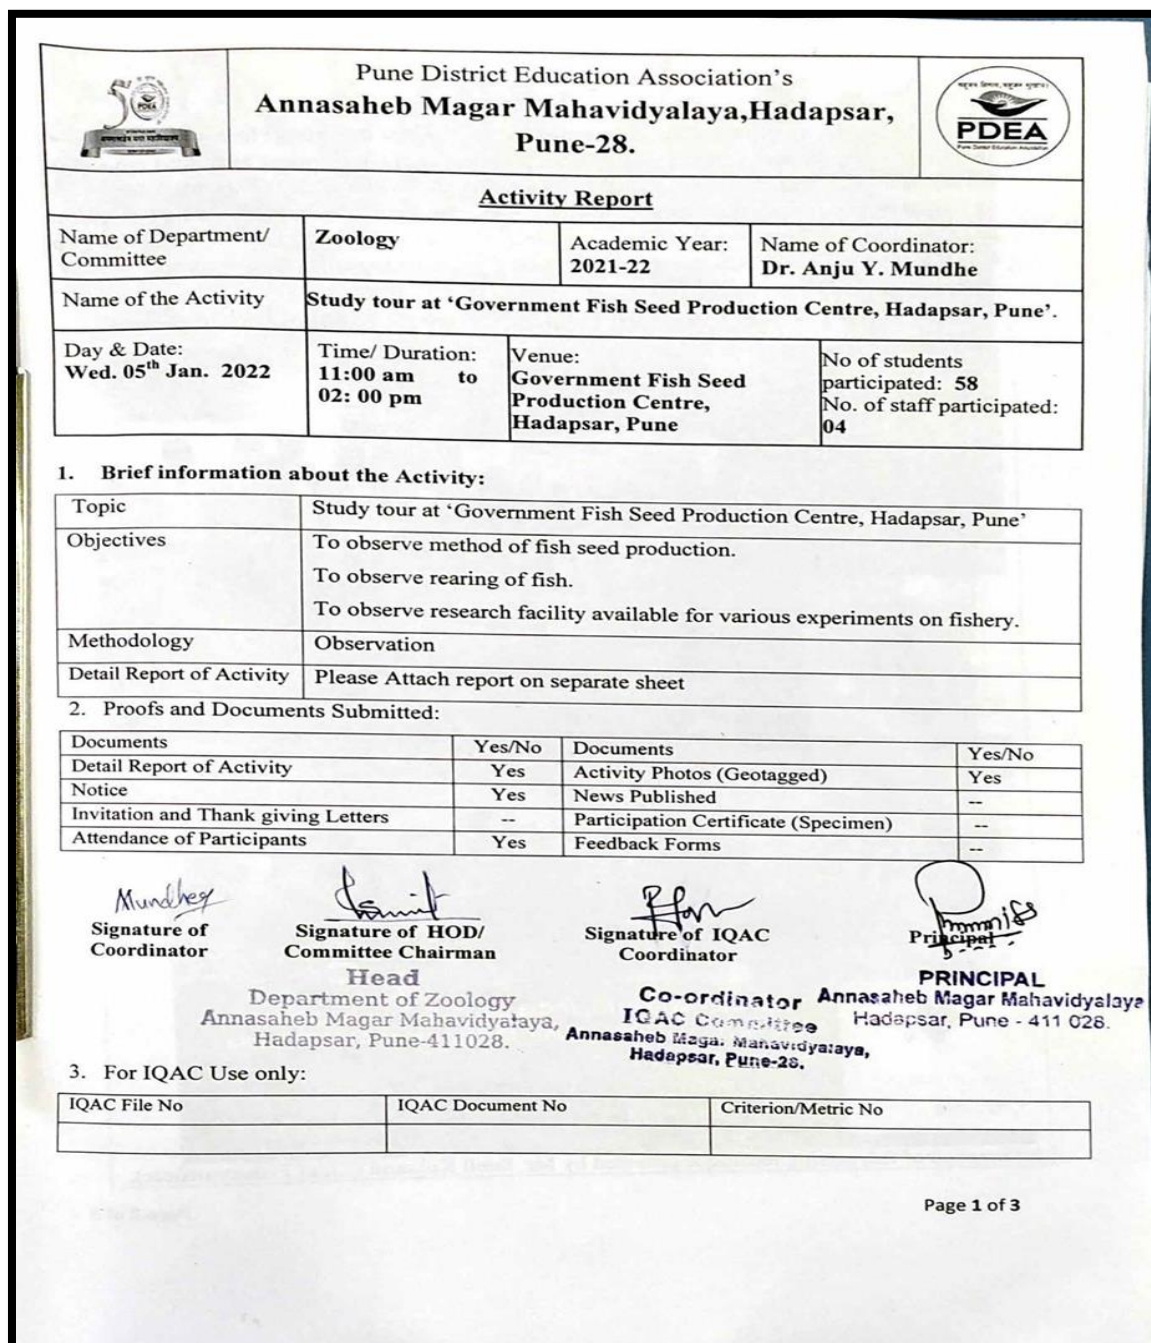 Pune District Education Association's
Annasaheb Magar Mahavidyalaya,Hadapsar,
Pune-28.
PDEA
PDEA
Activity Report
Name of Department/
Committee
Zoology
Academic Year:
2021-22
Name of Coordinator:
Dr. Anju Y. Mundhe
Name of the Activity
Study tour at ‘Government Fish Seed Production Centre, Hadapsar, Pune’.
Day & Date:
Wed. 05th Jan. 2022
Time/ Duration:
11:00 am to
02: 00 pm
Venue:
Government Fish Seed
Production Centre,
Hadapsar, Pune
No of students
participated: 58
No. of staff participated:
04
1. Brief information about the Activity:
Topic
Study tour at ‘Government Fish Seed Production Centre, Hadapsar, Pune’
Objectives
To observe method of fish seed production.
To observe rearing of fish.
To observe research facility available for various experiments on fishery.
Methodology
Observation
Detail Report of Activity
Please Attach report on separate sheet
2. Proofs and Documents Submitted:
Documents Yes/No Documents Yes/No
Detail Report of Activity Yes Activity Photos (Geotagged) Yes
Notice Yes News Published --
Invitation and Thank giving Letters -- Participation Certificate (Specimen) --
Attendance of Participants Yes Feedback Forms --
Signature of
Coordinator
Signature of HOD/
Committee Chairman
Head
Department of Zoology
Annasaheb Magar Mahavidyalaya,
Hadapsar, Pune-411028.
Signature of IQAC
Coordinator
Co-ordinator
IQAC Committee
Annasaheb Magar Mahavidyalaya,
Hadapsar, Pune-28.
Principal
PRINCIPAL
Annasaheb Magar Mahavidyalaya
Hadapsar, Pune - 411 028.
3. For IQAC Use only:
IQAC File No IQAC Document No Criterion/Metric No
Page 1 of 3